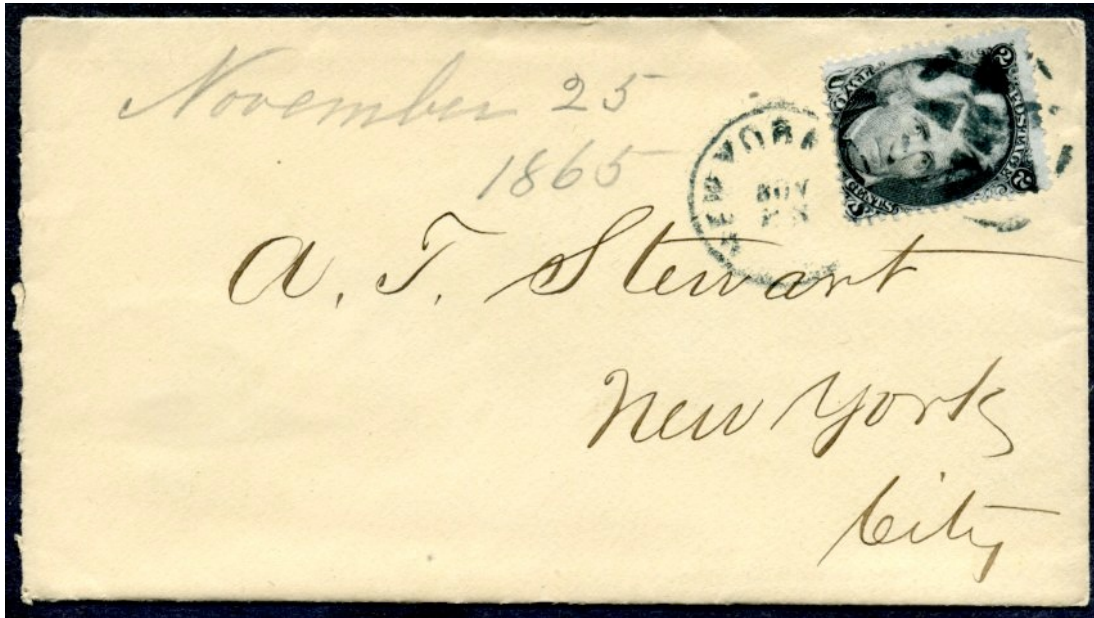 November 25
1865
NEW YORK
NOV
A. T. Stewart
New York
City